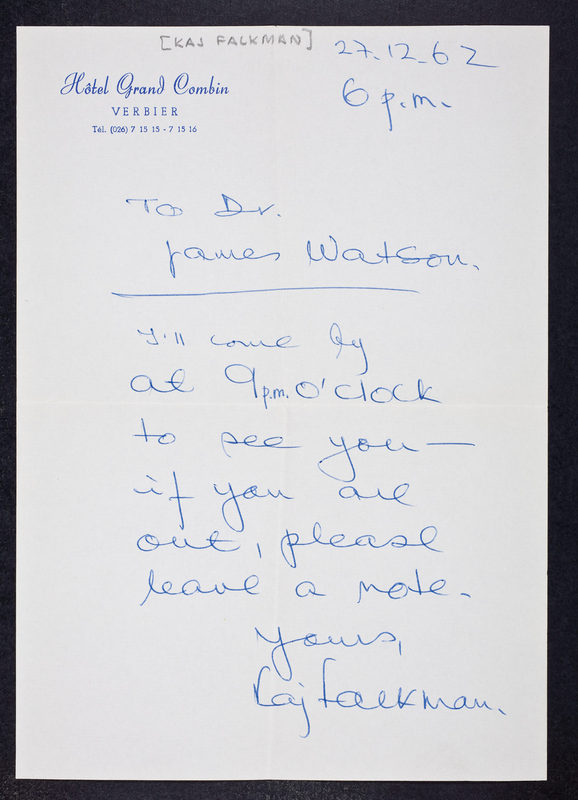 [KAJ FALKMAN]
27.12.62
6 p.m.
Hôtel Grand Combin
VERBIER
Tél. (026) 7 15 15 - 7 15 16
To Dr.
James Watson.
I'll come by
at 9 p.m. o'clock
to see you —
if you are
out, please
leave a note.
Yours,
Kaj Falkman.